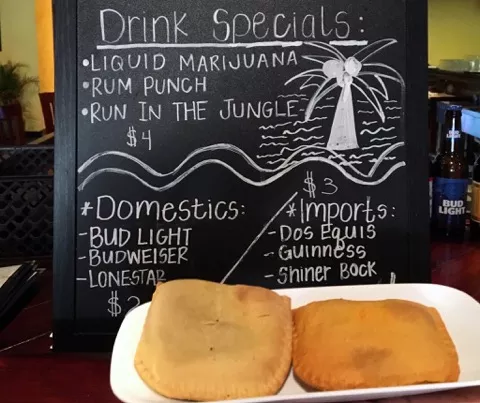 Drink Specials:
•LIQUID MARIJUANA
•RUM PUNCH
•RUN IN THE JUNGLE
$4
*Domestics:
-BUD LIGHT
-BUDWEISER
-LONESTAR
$3
*Imports:
-DOS EQUIS
-GUINNESS
-SHINER BOCK
BUD LIGHT